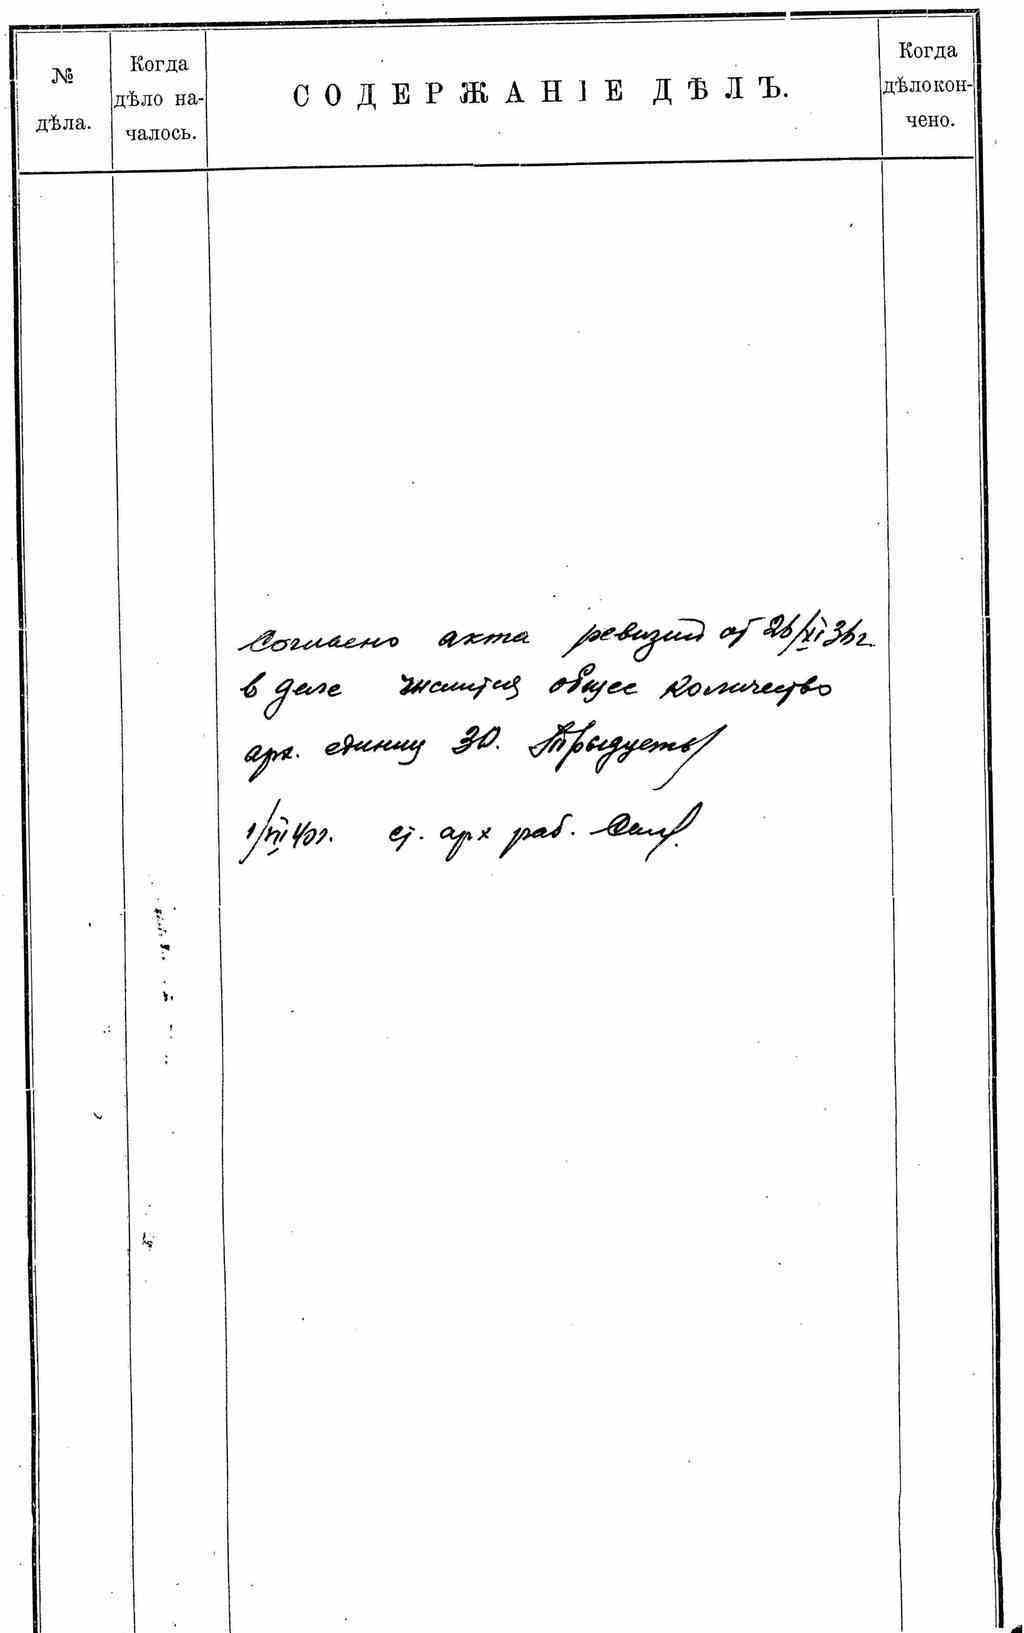 №
дѣла.
Когда
дѣло на-
чалось.
СОДЕРЖАНІЕ ДѢЛЪ.
Когда
дѣло кон-
чено.
Согласно акта ревизии от 26/XI 36г.
в деле числится общее количество
арх. единиц 30. /Трыдцеть/
1/VII 40г. ст. арх раб.